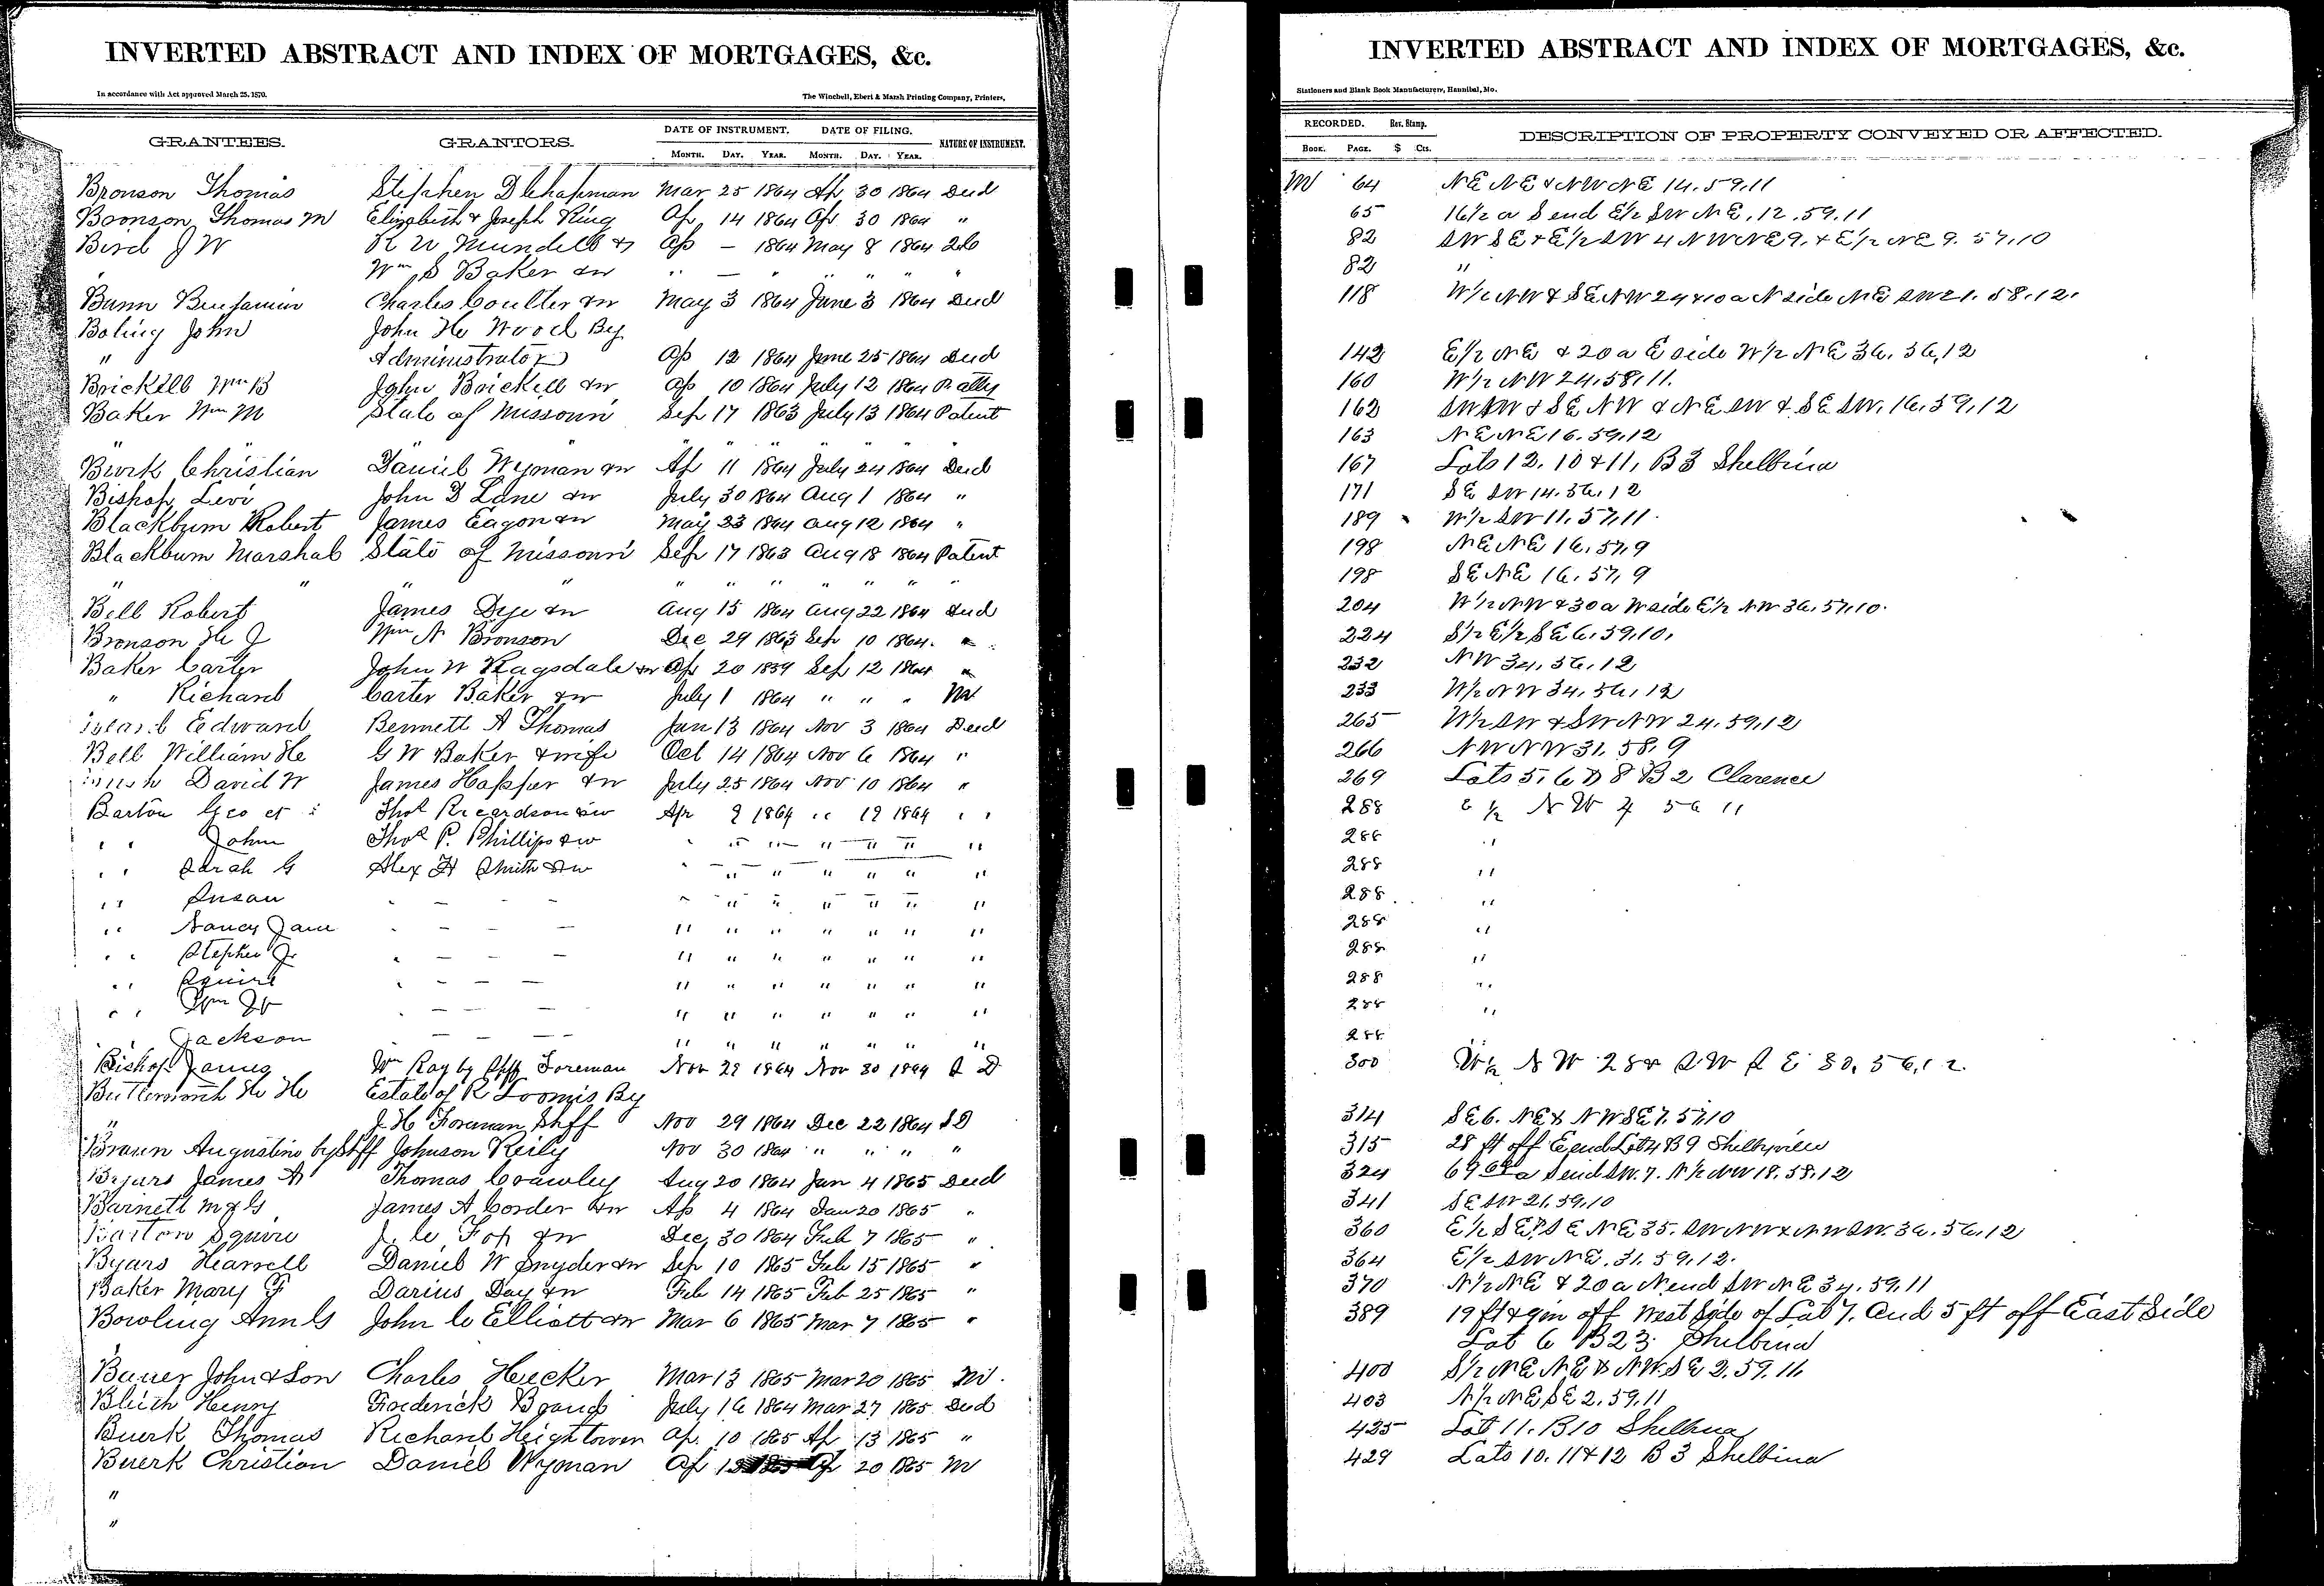 INVERTED ABSTRACT AND INDEX OF MORTGAGES, &c.
In accordance with Act approved March 25, 1870.
The Winchell, Ebert & Marsh Printing Company, Printers,
GRANTEES. GRANTORS. DATE OF INSTRUMENT. DATE OF FILING. NATURE OF INSTRUMENT.
MONTH. DAY. YEAR. MONTH. DAY. YEAR.
Bronson Thomas Stephen D Chapman Mar 25 1864 Ap 30 1864 Deed
Bronson Thomas M Elizabeth & Joseph King Ap 14 1864 Ap 30 1864 "
Bird J W R W Mundell & Ap — 1864 May 8 1864
" Wm S Baker &w " — " " " " "
Bunn Benjamin Charles Coulter &w May 3 1864 June 3 1864 Deed
Boling John John H Wood By
" Administrator Ap 12 1864 June 25 1864 Deed
Brickell Wm B John Brickell &w Ap 10 1864 July 12 1864 P atty
Baker Wm M State of Missouri Sep 17 1863 July 13 1864 Patent
" " " " " " " "
Burk Christian Daniel Wyman &w Ap 11 1864 July 24 1864 Deed
Bishop Levi John D Lane &w July 30 1864 Aug 1 1864 "
Blackburn Robert James Eagon &w May 23 1864 Aug 12 1864 "
Blackburn Marshal State of Missouri Sep 17 1863 Aug 18 1864 Patent
" " " " " " " " " " "
Bell Robert James Dye &w Aug 15 1864 Aug 22 1864 Deed
Bronson H J Wm A Bronson Dec 29 1863 Sep 10 1864. "
Baker Carter John W Ragsdale &w Ap 20 1839 Sep 12 1864 "
" Richard Carter Baker &w July 1 1864 " " " M
Edward Bennett A Thomas Jan 13 1864 Nov 3 1864 Deed
Bell William H G W Baker & wife Oct 14 1864 Nov 6 1864 "
David W James Hopper &w July 25 1864 Nov 10 1864 "
Barton Geo et Thos Ricardson &w Apr 9 1864 " 19 1864 "
" John Thos P. Phillips &w " " " " " "
" Sarah G Alex H Smith &w " " " " " "
" Susan - - - - " " " " " " "
" Nancy Jane - - - " " " " " " "
" Stephen Jr - - - - " " " " " " "
" Squire - - - - " " " " " " "
" Wm - - - " " " " " " "
Jackson - - - " " " " " " "
Bishop James Wm Ray by Shff Foreman Nov 29 1864 Nov 30 1864 S D
Butterworth H H Estate of R Loomis By
" J. H Foreman Shff Nov 29 1864 Dec 22 1864 SD
Braun Augustine by Shff Johnson Keily Nov 30 1864 " " " "
Byars James A Thomas Crawley Aug 20 1864 Jan 4 1865 Deed
Barnett M & G James A Corder &w Ap 4 1864 Jan 20 1865 "
Barton Squire J. C. Fox &w Dec 30 1864 Feb 7 1865 "
Byars Hearrell Daniel W Snyder &w Sep 10 1865 Feb 15 1865 "
Baker Mary F Darius Day &w Feb 14 1865 Feb 25 1865 "
Bowling Ann G John C Elliott &w Mar 6 1865 Mar 7 1865 "
Bauer John & Son Charles Hecker Mar 13 1865 Mar 20 1865 M.
Bleich Henry Frederick Brand July 16 1864 Mar 27 1865 Deed
Buerk Thomas Richard Heightower Ap. 10 1865 Ap 13 1865 "
Buerk Christian Daniel Wyman Ap 1865 Ap 20 1865 M
"
"
INVERTED ABSTRACT AND INDEX OF MORTGAGES, &c.
Stationers and Blank Book Manufacturers, Hannibal, Mo.
RECORDED. Rev. Stamp. DESCRIPTION OF PROPERTY CONVEYED OR AFFECTED.
BOOK. PAGE. $ Cts.
M 64 NE NE & NW NE 14.59.11
65 16½ a S end E½ SW NE. 12.59.11
82 SW SE & E½ SW 4 NW NE 9. & E½ NE 9. 57.10
82 "
118 W½ NW & SE NW 24 & 10 a N side NE SW 21. 58.12.
142 E½ NE & 20 a E side W½ NE 36. 56.12
160 W½ NW 24.58.11.
162 SW SW & SE NW & NE SW & SE SW. 16.59.12
163 NE NE 16.59.12
167 Lots 12. 10 & 11. B 3 Shelbina
171 SE SW 14.56.12
189 W½ SW 11.57.11.
198 NE NE 16.57.9
198 SE NE 16.57.9
204 W½ NW & 30 a W side E½ NW 36.57.10.
224 S½ E½ SE 6.59.10.
232 NW 34.56.12
233 W½ NW 34.56.12
265 W½ SW & SW NW 24.59.12
266 NW NW 31.58.9
269 Lots 5. 6 & 8 B 2 Clarence
288 E ½ N W 4 56 11
288 "
288 "
288 "
288 "
288 "
288 "
288 "
288
300 W½ N W 28 & S W S E 30. 56.12.
314 SE 6. NE & NW SE 7. 57.10
315 28 ft off E end Lot 4 B 9 Shelbyville
324 69 a S end SW. 7. N½ NW 18.58.12
341 SE SW 21.59.10
360 E½ SE & SE NE 35. SW NW & NW SW. 36.56.12
364 E½ SW NE. 31.59.12.
370 N½ NE & 20 a N end SW NE 34.59.11
389 19 ft & 9 in off West Side of Lot 7. and 5 ft off East Side
Lot 6 B 23 Shelbina
400 S½ NE NE & NW SE 2.59.11
403 N½ NE SE 2.59.11
425 Lot 11. B 10 Shelbina
429 Lots 10. 11 & 12 B 3 Shelbina